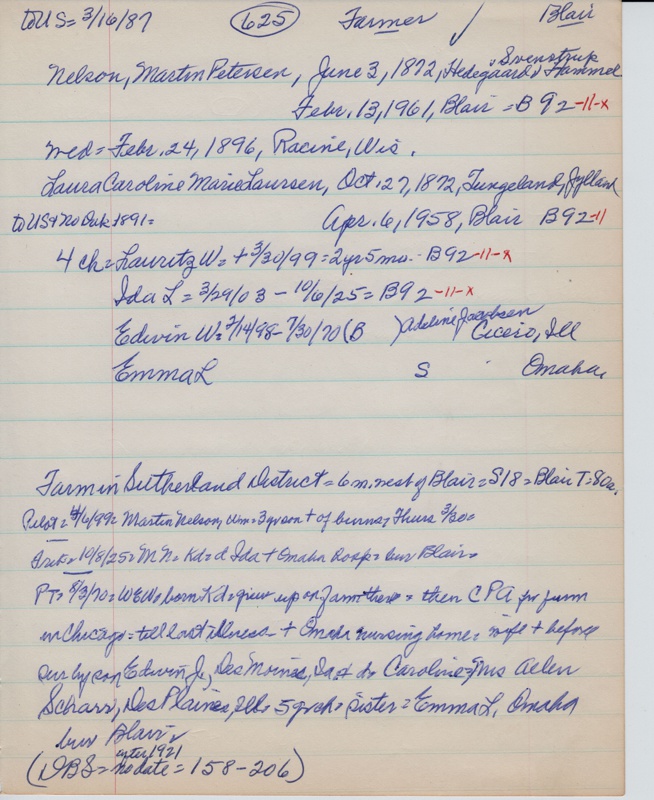 to US = 3/16/87 625 Farmer ✓ Blair
Nelson, Martin Petersen, June 3, 1872, Hedegaard, Svenstrup Hammel
Febr. 13, 1961, Blair = B 92-11-x
med = Febr. 24, 1896, Racine, Wis.
Laura Caroline Marie Laursen, Oct. 27, 1872, Tungeland, Jylland
to US + no Dak 1891 = Apr. 6, 1958, Blair B92-11
4 ch = Lauritz W = + 3/30/99 = 2 yr 5 mo. B92-11-x
Ida L = 3/29/03 - 10/6/25 = B92-11-x
Edwin W = 2/14/98 - 7/30/70 (B ) Adeline Jacobsen Cicero, Ill
Emma L S Omaha,
Farm in Sutherland District = 6 m. west of Blair = S18 = Blair T = 80a.
Pilot = 4/6/99 = Martin Nelson, = 3 yr son + of burns, Thurs 3/30 =
10/8/25 = M N = Kd = d Ida + Omaha hosp = bur Blair =
PT = 8/3/70 = WEW = born Kd = grew up on farm there = then CPA for firm
in Chicago = till last illness + Omaha nursing home, wife + before
sur by son Edwin Jr, Des Moines, Ia, + d Caroline = Mrs Allen
Des Plaines, Ill = 5 grch = sister = Emma L, Omaha
bur Blair =
(DBS = no date = after 1921 = 158-206)